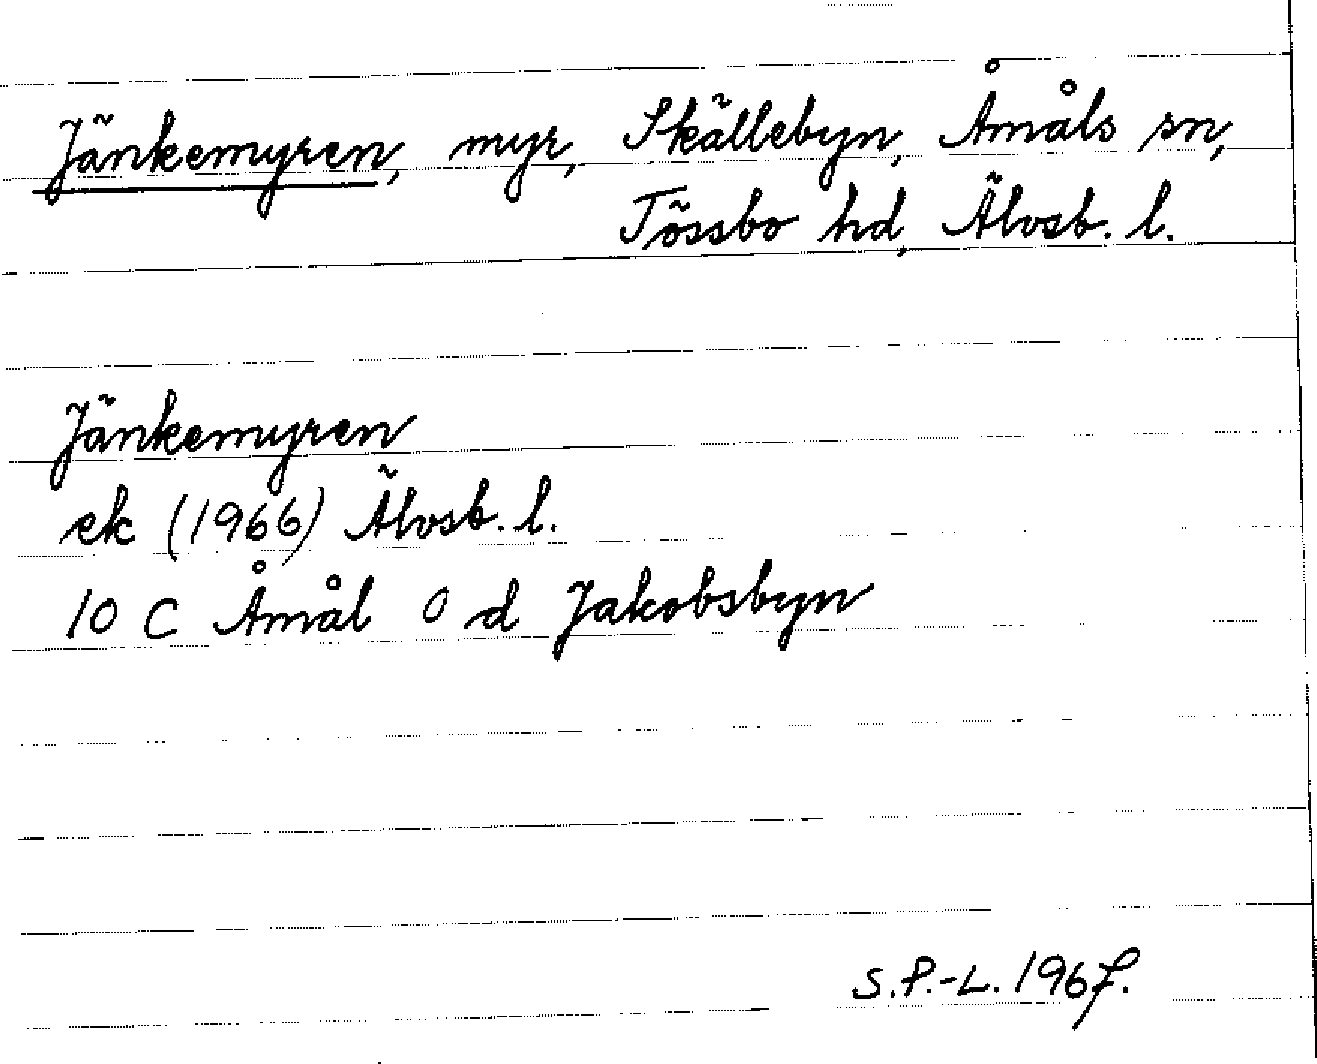 Jänkemyren, myr, Skällebyn, Åmåls sn,
Tössbo hd, Älvsb. l.
Jänkemyren
ek (1966) Älvsb. l.
10 C Åmål 0 d Jakobsbyn
S.P.-L. 1967.